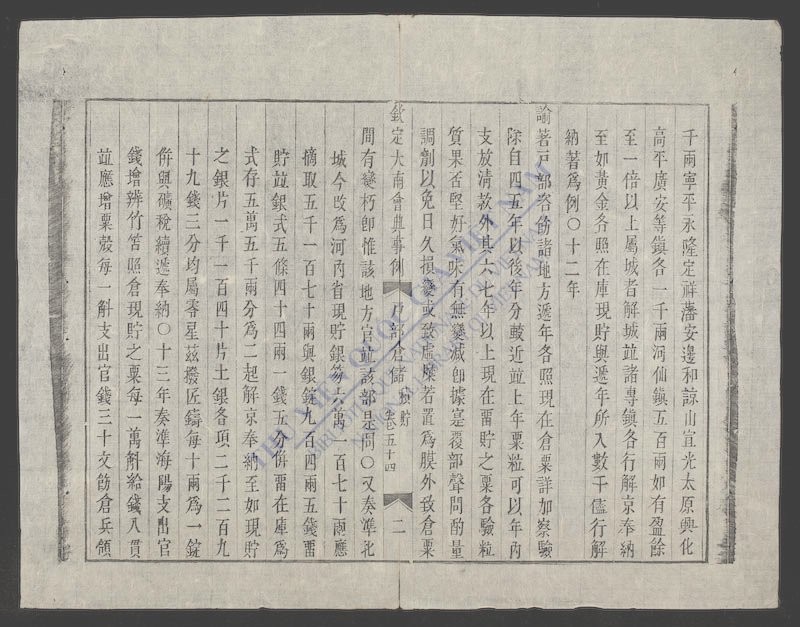 千兩寧平永隆定祥藩安邊和諒山宣光太原興化
高平廣安等鎮各一千兩河仙鎮五百兩如有盈餘
至一倍以上屬城者解城並諸專鎮各行解京奉納
至如黃金各照在庫現貯與遞年所入數千儘行解
納著爲例〇十二年
諭著戶部咨飭諸地方遞年各照現在倉粟詳加察驗
除自四五年以後年分較近並上年粟粒可以年內
支放清款外其六七年以上現在畱貯之粟各驗粒
質果否堅好氣味有無變減卽據寔覆部聲問酌量
調劑以免日久損變或致虛糜若置爲膜外致倉粟
欽定大南會典事例 戶部倉儲 積貯 卷五十四 二
間有變朽卽惟該地方官並該部是問〇又奏準北
城今改爲河內省現貯銀笏六萬一百七十兩應
摘取五千一百七十兩與銀錠九百四兩五錢畱
貯並銀式五條四十四兩一錢五分併畱在庫爲
式存五萬五千兩分爲二起解京奉納至如現貯
之銀片一千一百四十片土銀各項二千二百九
十九錢三分均屬零星茲撥匠鑄每十兩爲一錠
併與礦稅續遞奉納〇十三年奏準海陽支出官
錢增辨竹笘照倉現貯之粟每一萬斛給錢八貫
並應增粟穀每一斛支出官錢三十文飭倉兵領
THE NATIONAL LIBRARY OF VIETNAM